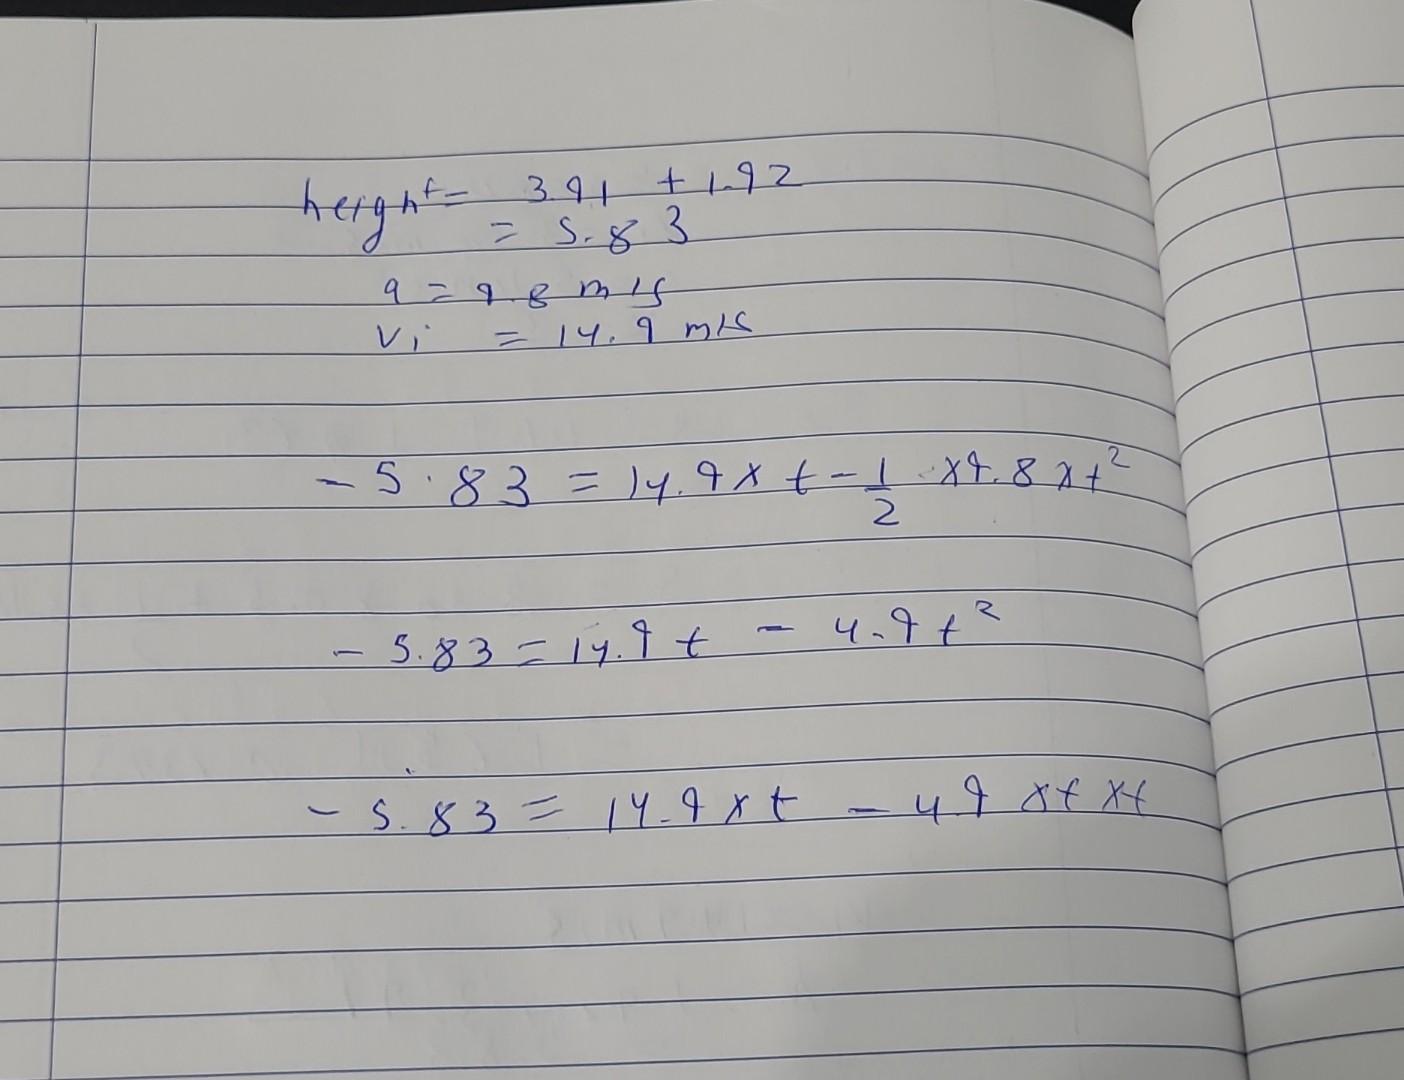 height = 3.91 + 1.92
= 5.83
a = 9.8 m/s
Vi = 14.9 m/s
- 5.83 = 14.9 x t - 1/2 x 9.8 x t²
- 5.83 = 14.9 t - 4.9 t²
- 5.83 = 14.9 x t - 49 x t x t